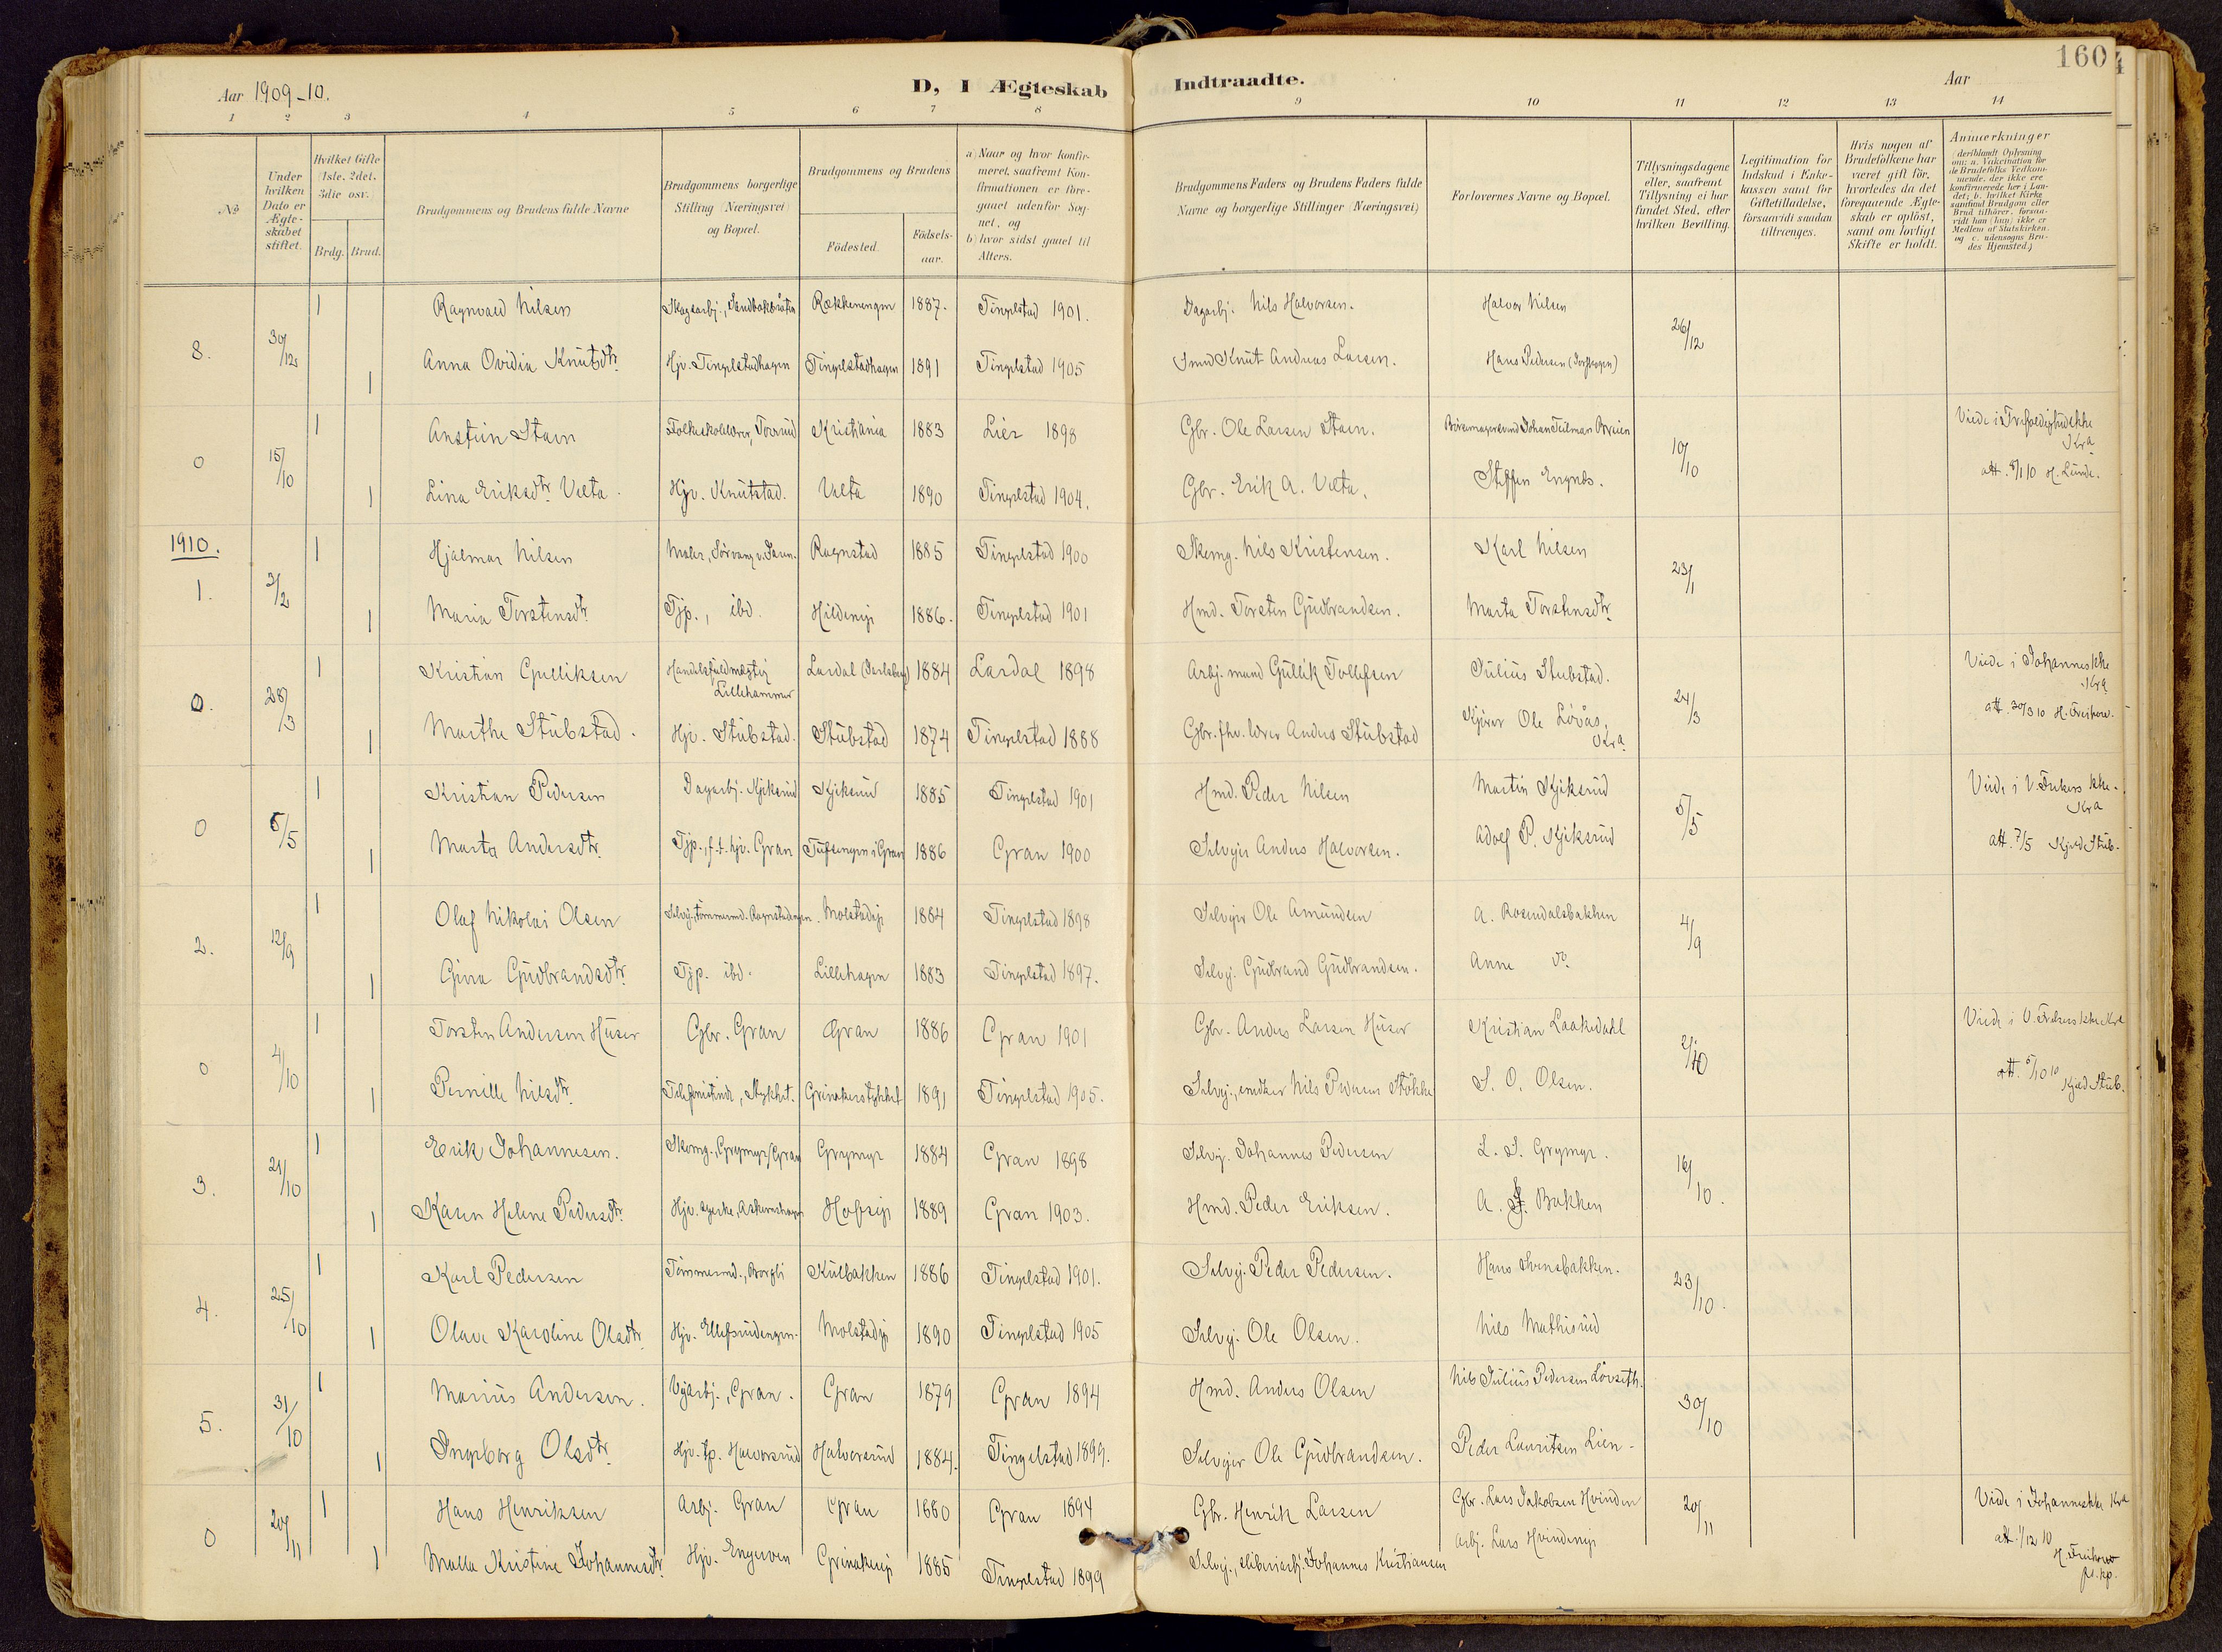 160
Aar 1909-10.
D, I Ægteskab Indtraadte.
Aar
1 2 3 4 5 6 7 8 9 10 11 12 13 14
No
Under hvilken Dato er Ægteskabet stiftet.
Hvilket Gifte (1ste, 2det, 3die osv.
Brdg. Brud.
Brudgommens og Brudens fulde Navne
Brudgommens borgerlige Stilling (Næringsvei) og Bopæl.
Brudgommens og Brudens
Födested.
Födselsaar.
a) Naar og hvor konfirmeret, saafremt Konfirmationen er foregaaet udenfor Sognet, og
b) hvor sidst gaaet til Alters.
Brudgommens Faders og Brudens Faders fulde Navne og borgerlige Stillinger (Næringsvei)
Forlovernes Navne og Bopæl.
Tillysningsdagene eller, saafremt Tillysning ei har fundet Sted, efter hvilken Bevilling.
Legitimation for Indskud i Enkekassen samt for Giftetilladelse, forsaavidt saadan tiltrænges.
Hvis nogen af Brudefolkene har været gift för, hvorledes da det foregaaende Ægteskab er oplöst, samt om lovligt Skifte er holdt.
Anmærkninger (deriblandt Oplysning om: a. Vakcination for de Brudefolks Vedkommende, der ikke ere konfirmerede her i Landet; b. hvilket Kirkesamfund Brudgom eller Brud tilhörer, forsaavidt han (hun) ikke er Medlem af Statskirken, og c. udensogns Brudes Hjemsted.)
8. 30/12 1 Ragnvald Nilsen Skogsarbj., Sandbakbråten Rækkenengen 1887. Tingelstad 1901. Dagarbj. Nils Halvorsen. Halvor Nilsen 26/12
1 Anna Ovidia Knutsdtr. Hjv. Tingelstadhagen Tingelstadhagen 1891 Tingelstad 1905 Smed Knut Andreas Larsen. Hans Pedersen
0 15/10 1 Anstein Staen Folkeskolelærer, Kristiania 1883 Lier 1898 Gbr. Ole Larsen Staen. Johan Teilman 10/10 Viede i Trefoldighedskke Kra
1 Lina Eriksdtr. Velta. Hjv. Knutstad. Velta 1890 Tingelstad 1904. Gbr. Erik A. Velta. Steffen Engnæs. att. 8/1 10 H. Lunde.
1910.
1. 3/2 1 Hjalmar Nilsen Maler, Ragnstad 1885 Tingelstad 1900 Skomg. Nils Kristensen. Karl Nilsen 23/1
1 Maria Torstensdtr. Tjp., ibd. Hildeneje 1886. Tingelstad 1901 Hmd. Torsten Gudbrandsen. Marta Torstensdtr.
0. 28/3 1 Kristian Gulliksen Handelsfuldmægtig Lillehammer Lardal (Jarlsberg) 1884 Lardal 1898 Arbj.mand Gullik Tollefsen Julius Stubstad. 24/3 Viede i Johanneskke Kra
1 Marthe Stubstad. Hjv. Stubstad. Stubstad 1874 Tingelstad 1888 Gbr. fhv. lærer Anders Stubstad Kjörer Ole Lövås, Kra. att. 30/3 10 H.
0 5/5 1 Kristian Pedersen Dagarbj. Kjiksrud Kjiksrud 1885 Tingelstad 1901 Hmd. Peder Nilsen Martin Kjiksrud 5/5 Viede i V. Frelsers kke. Kra
1 Marta Andersdtr. Tjp., f.t. hjv. Gran i Gran 1886 Gran 1900 Selvejer Anders Halvorsen. Adolf P. Kjiksrud att. 7/5 Kjeld Stub.
2. 12/9 1 Olaf Nikolai Olsen Selvej., tömmermd. Ragnstadengen. Molstadeje 1884 Tingelstad 1898 Selvejer Ole Amundsen A. Rosendalsbakken 4/9
1 Gina Gudbrandsdtr. Tjp. ibd. Lillehagen 1883 Tingelstad 1897. Selvej. Gudbrand Gudbrandsen. Anne do.
0 4/10 1 Torsten Andersen Huser Gbr. Gran Gran 1886 Gran 1901 Gbr. Anders Larsen Huser Kristian Laakedahl 2/10 Viede i V. Frelsers kke Kra
1 Pernille Nilsdtr. Telefonistinde, Stykket. Grinakerstykket 1891 Tingelstad 1905. Selvej., snedker Nils Pedersen S. O. Olsen. att. 5/10 10 Kjeld Stub.
3. 21/10 1 Erik Johannesen. Skomg., Grymyr, Gran Grymyr 1884 Gran 1898 Selvej. Johannes Pedersen L. J. Grymyr. 16/10.
1 Karen Helene Pedersdtr. Hjv. Hofseje 1889 Gran 1903. Hmd. Peder Eriksen. A. J. Bakken
4. 25/10 1 Karl Pedersen Tömmermd., Borgli Kulbakken 1886 Tingelstad 1901. Selvej. Peder Pedersen. Hans Svensbakken. 23/10.
1 Olava Karoline Olsdtr. Hjv. Ellefsrudengen. Molstadeje 1890 Tingelstad 1905 Selvej. Ole Olsen. Nils Mathisrud
5. 31/10 1 Marius Andersen. Vejarbj., Gran. Gran 1879 Gran 1894 Hmd. Anders Olsen Nils Julius Pedersen Lövseth. 30/10
1 Ingeborg Olsdtr. Hjv. tp. Halvorsrud Halvorsrud 1884. Tingelstad 1899. Selvejer Ole Gudbrandsen. Peder Lauritsen Lien.
0 20/11 1 Hans Henriksen Arbj. Gran Gran 1880 Gran 1894 Gbr. Henrik Larsen Gbr. Lars Jakobsen Hvinden 20/11 Viede i Johanneskke Kra
1 Malla Kristine Johannesdtr. Hjv. Engerven Grinakereje 1885 Tingelstad 1899 Selvej., sliberiarbj. Johannes Kristiansen Arbj. Lars Hvindeneje att. 1/12 10 H.